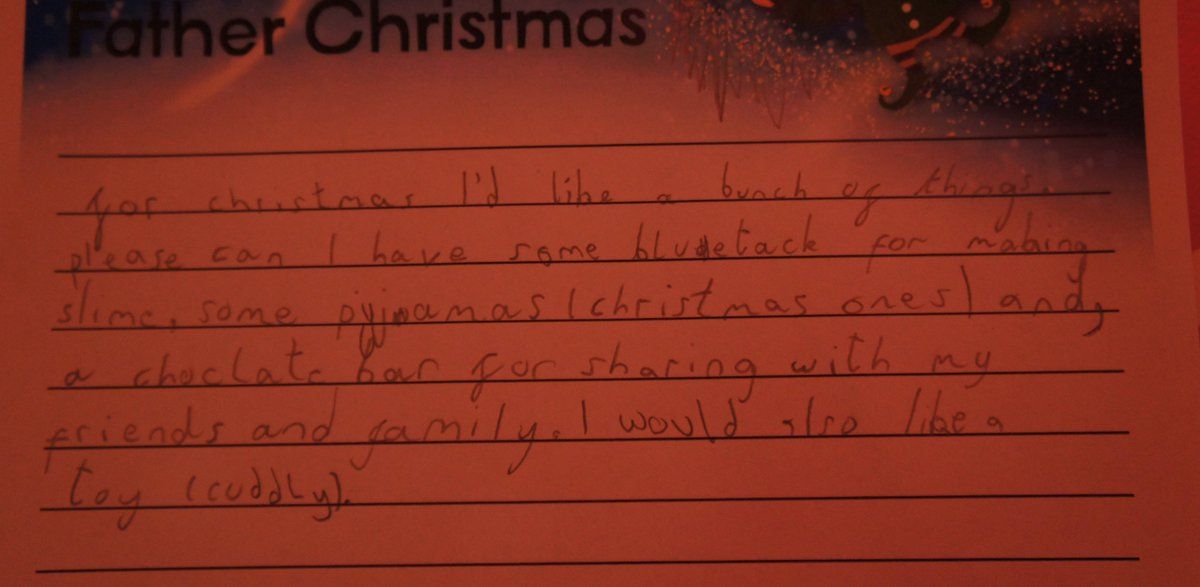 Father Christmas
for christmas I'd like a bunch of things.
please can I have some bluetack for making
slime, some pyjamas (christmas ones) and,
a choclate bar for sharing with my
friends and family. I would also like a
toy (cuddly).